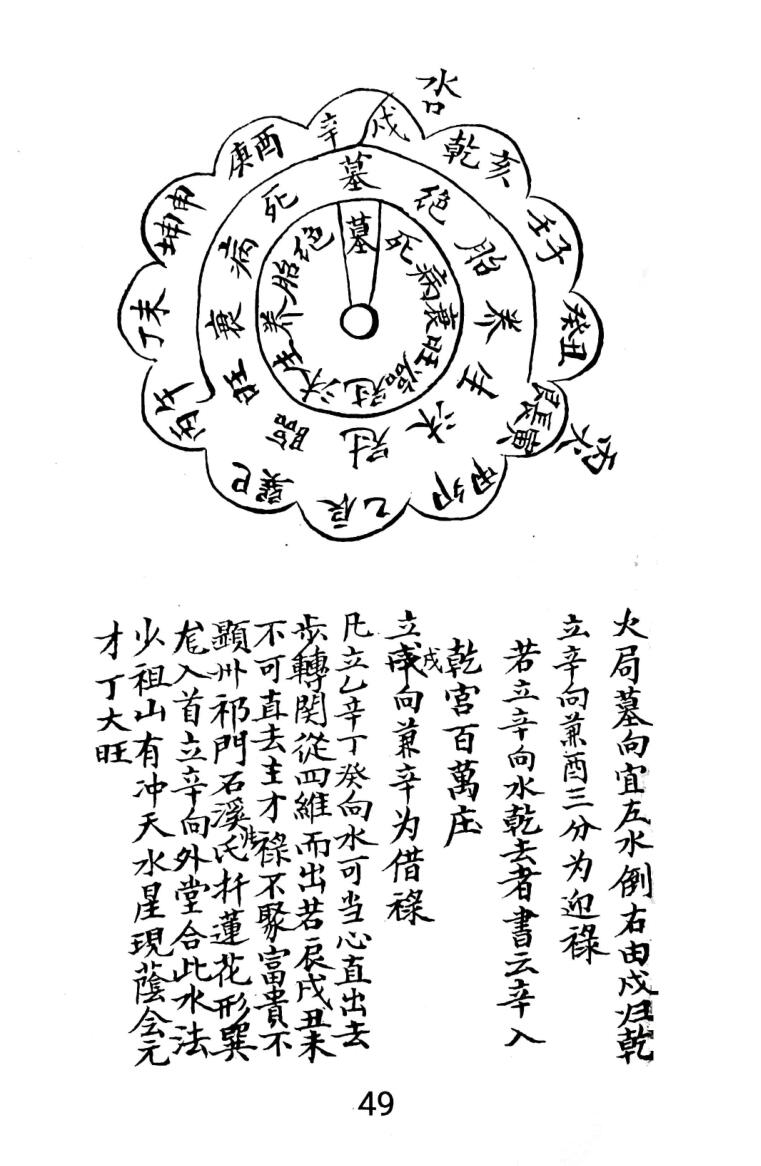 水口
辛戌
乾亥
壬子
癸丑
艮寅
丙火
甲卯
乙辰
巽巳
丙午
丁未
坤申
庚酉
墓绝胎养生沐冠臨旺衰病死
墓死病衰旺临冠沐生养胎绝
火局墓向宜左水倒右由戌归乾
立辛向兼酉三分为迎祿
若立辛向水乾去者書云辛入
乾宫百萬庄
立戌向兼辛为借祿
凡立乙辛丁癸向水可当心直出去
步轉関從四維而出若辰戌丑未
不可直去主才祿不聚富貴不
顕卅祁門石溪氏扦蓮花形巽
龙入首立辛向外堂合此水法
少祖山有冲天水星現蔭会元
才丁大旺
49